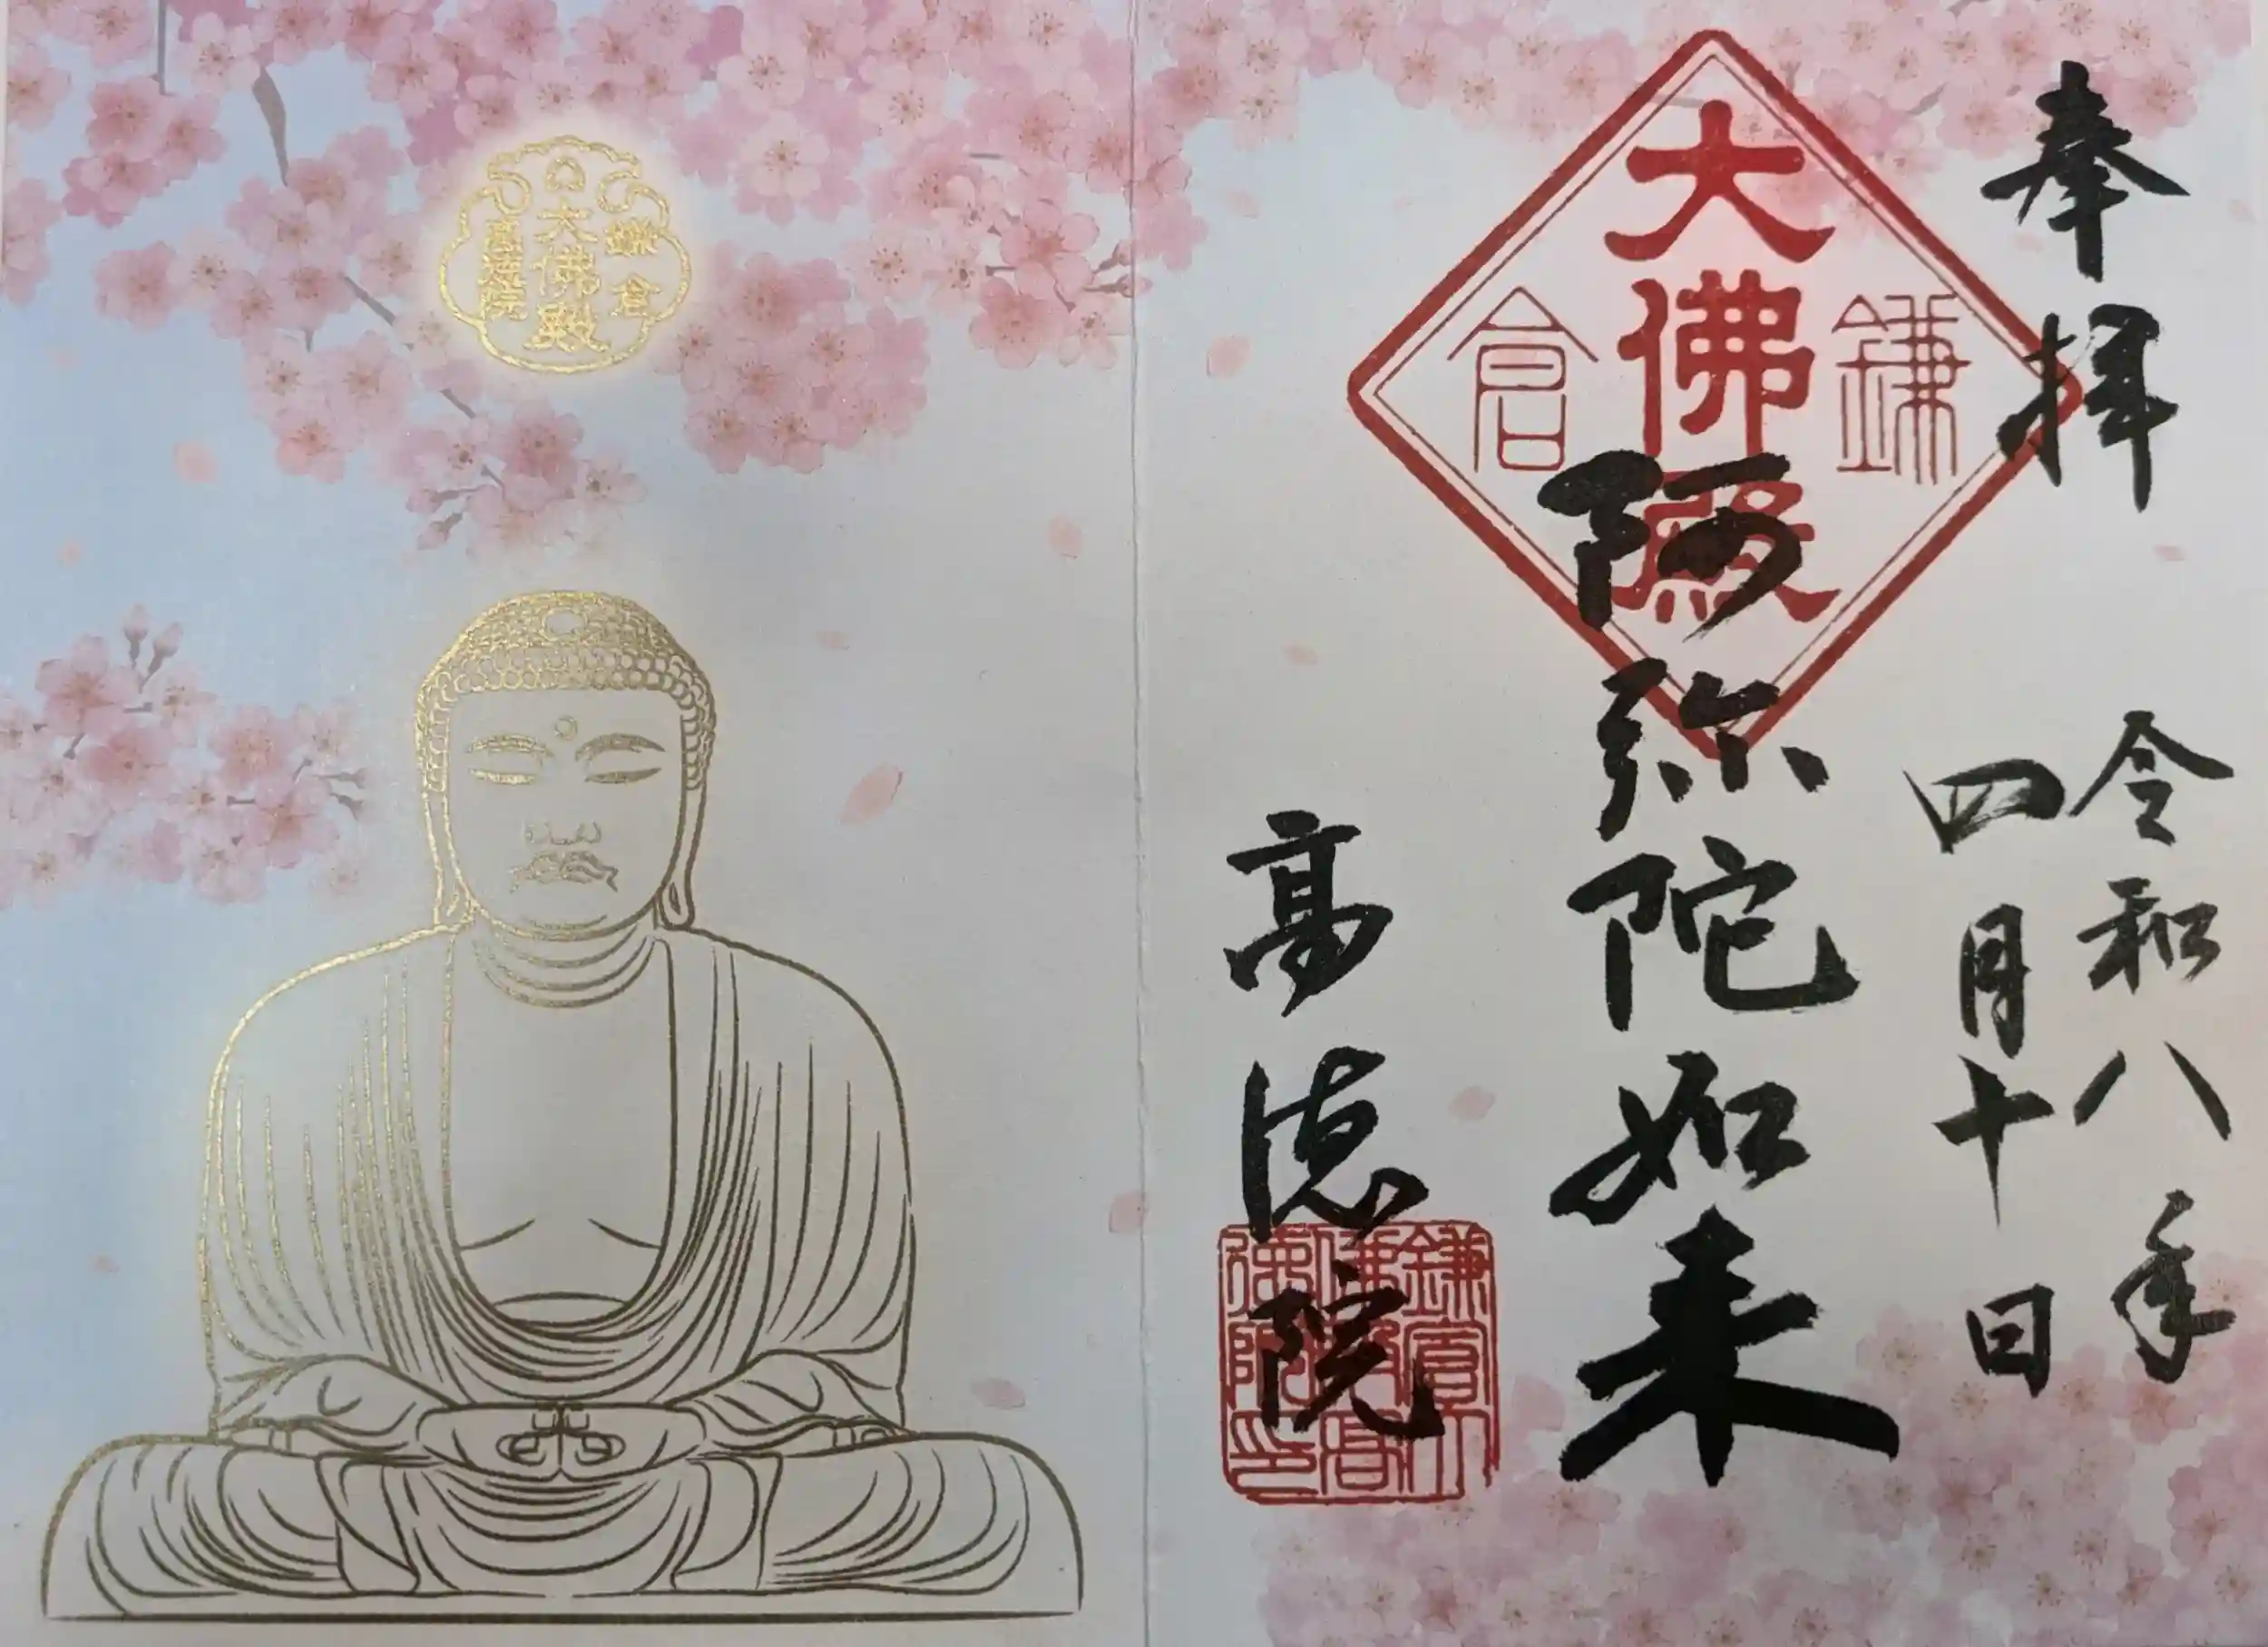 奉拝
令和八年
四月十日
鎌倉
大佛殿
阿弥陀如来
高徳院
鎌倉大
佛殿高
徳院印
鎌倉
大佛殿
高徳院